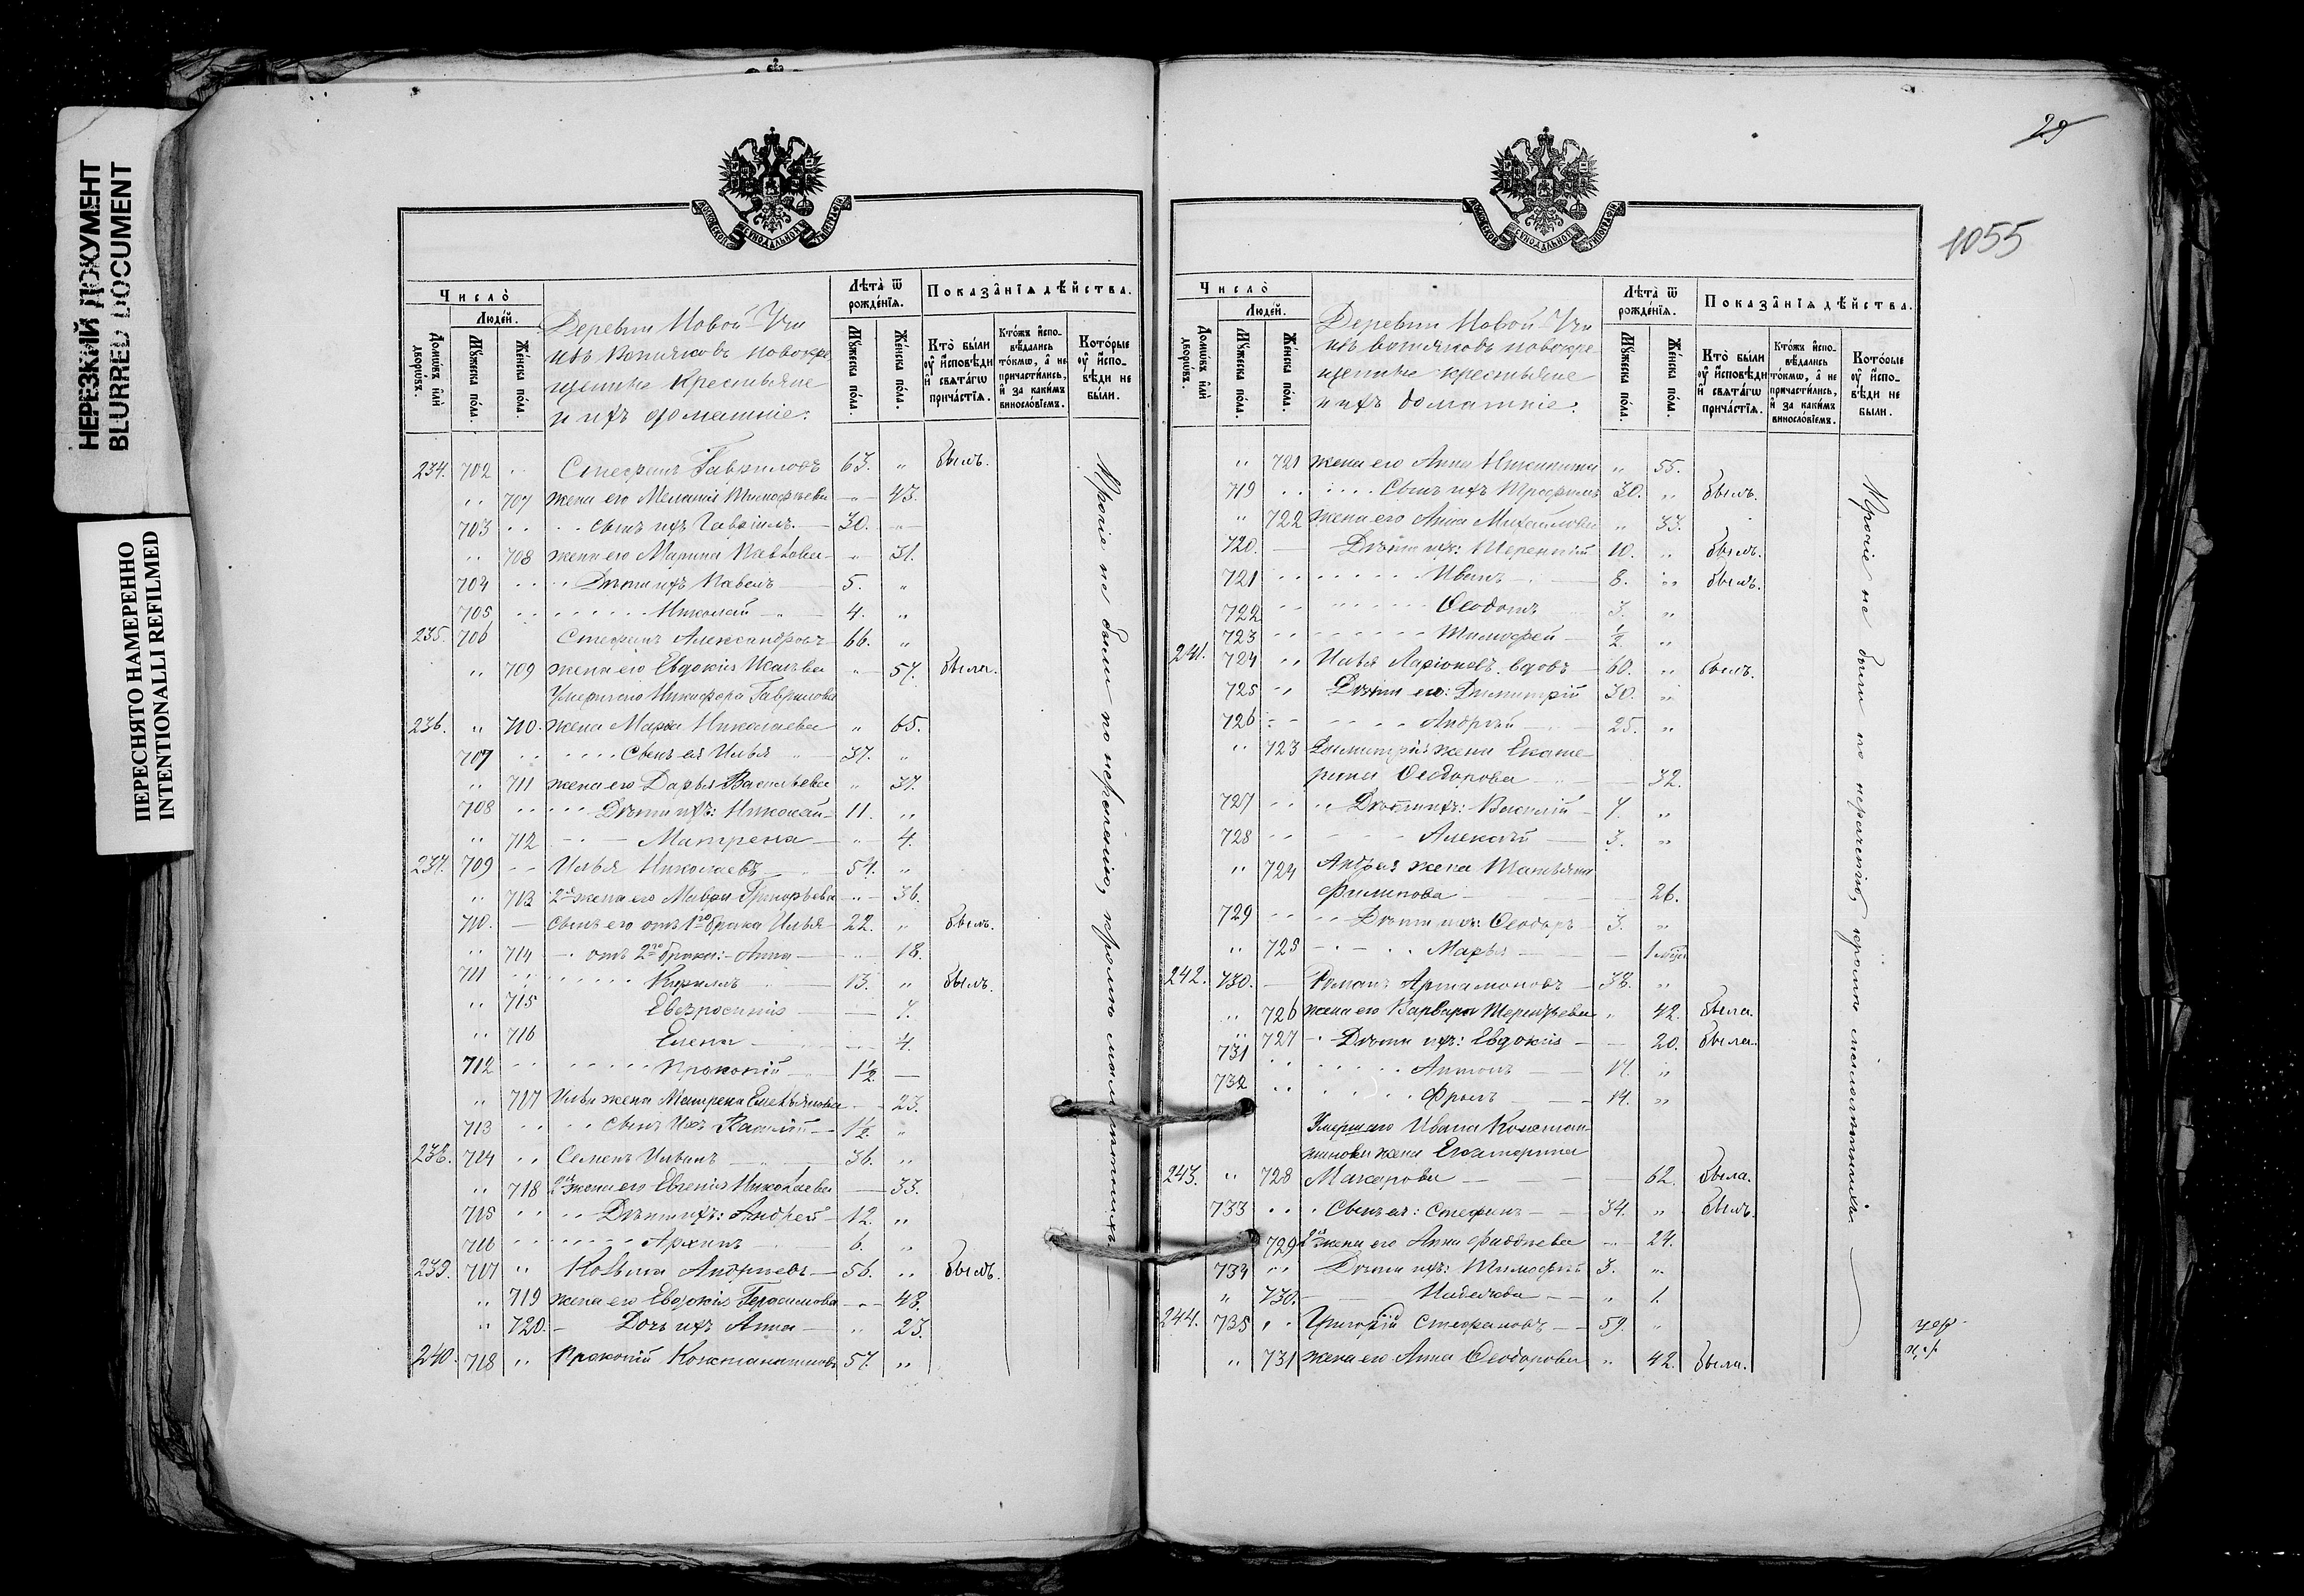 НЕРЕЗКИЙ ДОКУМЕНТ
BLURRED DOCUMENT
ПЕРЕСНЯТО НАМЕРЕННО
INTENTIONALLI REFILMED
МОСКОВСКОЙ СѴНОДАЛЬНОЙ ТИПОГРАФІИ
Число̀
Людей.
Домѡвъ и҆лѝ дворѡвъ.
Мꙋжеска пола.
Женска пола.
Деревни Новой Учи
изъ вотяковъ новокре
щенные крестьяне
и ихъ домашніе:
Лѣта̀ ѿ рожденїѧ.
Мꙋжеска пола.
Женска пола.
Показанїѧ дѣйства.
Кто̀ были оу҆ и҆сповѣди и҆ свѧтагѡ причастїѧ.
Ктожъ и҆сповѣдались токмѡ, а҆ не причастились, и҆ за какимъ винословїемъ.
Которые оу҆ и҆сповѣди не были.
234. 702 Стефанъ Гавриловъ 63. " былъ.
" 707 жена его Меланія Тимофѣева " 43.
703 сынъ ихъ Гавріилъ 30. "
" 708 жена его Марина Павлова " 31.
704 Дѣти ихъ Павелъ 5. "
705 Николай 4. "
235. 706 Стефанъ Александровъ 66. "
" 709 жена его Евдокія Исаева " 57. была.
Умершаго Никифора Гаврилова
236. " 710. жена Марѳа Николаева " 65.
707 Сынъ ея Илья 37. "
" 711 жена его Дарья Васильева " 37.
708 Дѣти ихъ: Николай 11. "
" 712 Матрена " 4.
237. 709 Илья Николаевъ 57. "
" 713 2я жена его Мавра Григорьева " 36.
710. сынъ его отъ 1го брака Илья 22. " былъ.
" 714 отъ 2го брака: Анна " 18.
711 Кириллъ 13. " былъ.
" 715 Евфросинія 7.
" 716 Елена 4.
712 Прокопій 1½
" 717 Ильи жена Матрена Емельянова 23.
713 сынъ ихъ Василій 1½ "
238. 714 Семенъ Ильинъ 36. "
" 718 2я жена его Евгенія Николаева 33.
715 Дѣти ихъ: Андрей 12. "
716 Архипъ 6. "
239. 717 " Козьма Андреевъ 56. " былъ.
" 719 жена его Евдокія Герасимова " 48.
" 720. Дочь ихъ Анна " 23.
240. 718 " Прокопій Константиновъ 57. "
Прочіе не были по нераченію, кромѣ малолѣтнихъ.
29
1055
МОСКОВСКОЙ СѴНОДАЛЬНОЙ ТИПОГРАФІИ
Число̀
Людей.
Домѡвъ и҆лѝ дворѡвъ.
Мꙋжеска пола.
Женска пола.
Деревни Новой Учи
изъ вотяковъ новокре
щенные крестьяне
и ихъ домашніе:
Лѣта̀ ѿ рожденїѧ.
Мꙋжеска пола.
Женска пола.
Показанїѧ дѣйства.
Кто̀ были оу҆ и҆сповѣди и҆ свѧтагѡ причастїѧ.
Ктожъ и҆сповѣдались токмѡ, а҆ не причастились, и҆ за какимъ винословїемъ.
Которые оу҆ и҆сповѣди не были.
" 721 жена его Анна Никитина " 55.
719 Сынъ ихъ Трофимъ 30. " былъ.
" 722 жена его Анна Михайлова " 33.
720. Дѣти ихъ: Терентій 10. " былъ.
721 Иванъ 8. " былъ.
722 Ѳеодотъ 3. "
723 Тимофей ½ "
241. 724 " Илья Ларіоновъ вдовъ 60. " былъ.
725 " Дѣти его: Димитрій 30. "
726 Андрей 25. "
" 723 Димитрія жена Екате-
рина Ѳеодорова 32.
727 Дѣти ихъ: Василій 7. "
728 Алексѣй 3. "
" 724 Андрея жена Татьяна
Филипова 26.
729 Дѣти ихъ: Ѳеодоръ 3. "
" 725 Марья 1 мѣся
242. 730. Романъ Артамоновъ 38. "
" 726 жена его Варвара Терентьева " 42. была.
" 727 Дѣти ихъ: Евдокія 20. была.
731 Антонъ 17. "
732 Фролъ 14. "
Умершаго Ивана Констан-
тинова жена Екатерина
243. " 728 Макарова 62. была.
733 Сынъ ея: Стефанъ 34. " былъ.
729 2я жена его Анна Фаддѣева " 24.
734 " Дѣти ихъ: Тимофей 3. "
" 730. Надежда " 1.
244. 735 " Григорій Стефановъ 59. "
" 731 жена его Анна Ѳеодорова " 42. была.
Прочіе не были по нераченію, кромѣ малолѣтнихъ.